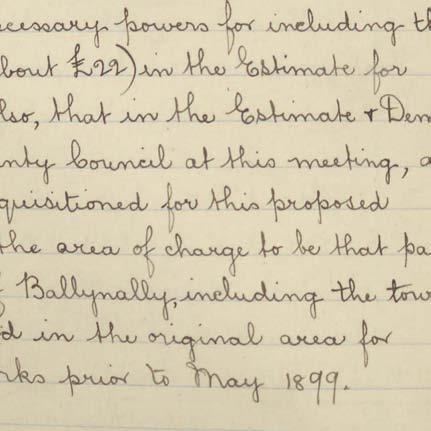 ecessary powers for including th
bout £22) in the Estimate for
lso, that in the Estimate & Dem
nty Council at this meeting, a
quisitioned for this proposed
the area of charge to be that pa
f Ballynally, including the tow
d in the original area for
rks prior to May 1899.